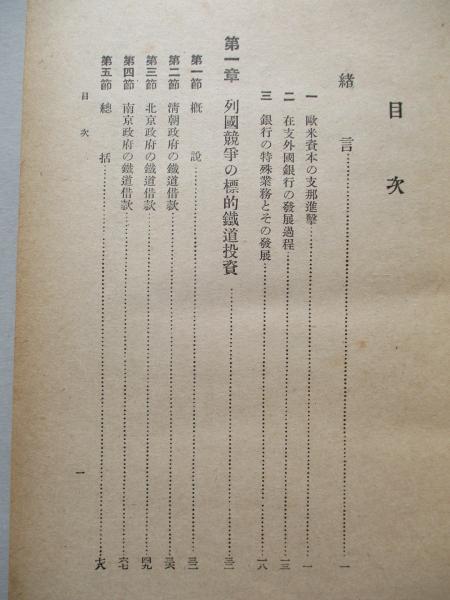 目次
緒言……一
一 歐米資本の支那進擊……一
二 在支外國銀行の發展過程……一三
三 銀行の特殊業務とその發展……一八
第一章 列國競爭の標的鐵道投資……三二
第一節 槪說……三二
第二節 淸朝政府の鐵道借款……三六
第三節 北京政府の鐵道借款……四九
第四節 南京政府の鐵道借款……六七
第五節 總括……七八
目次
一